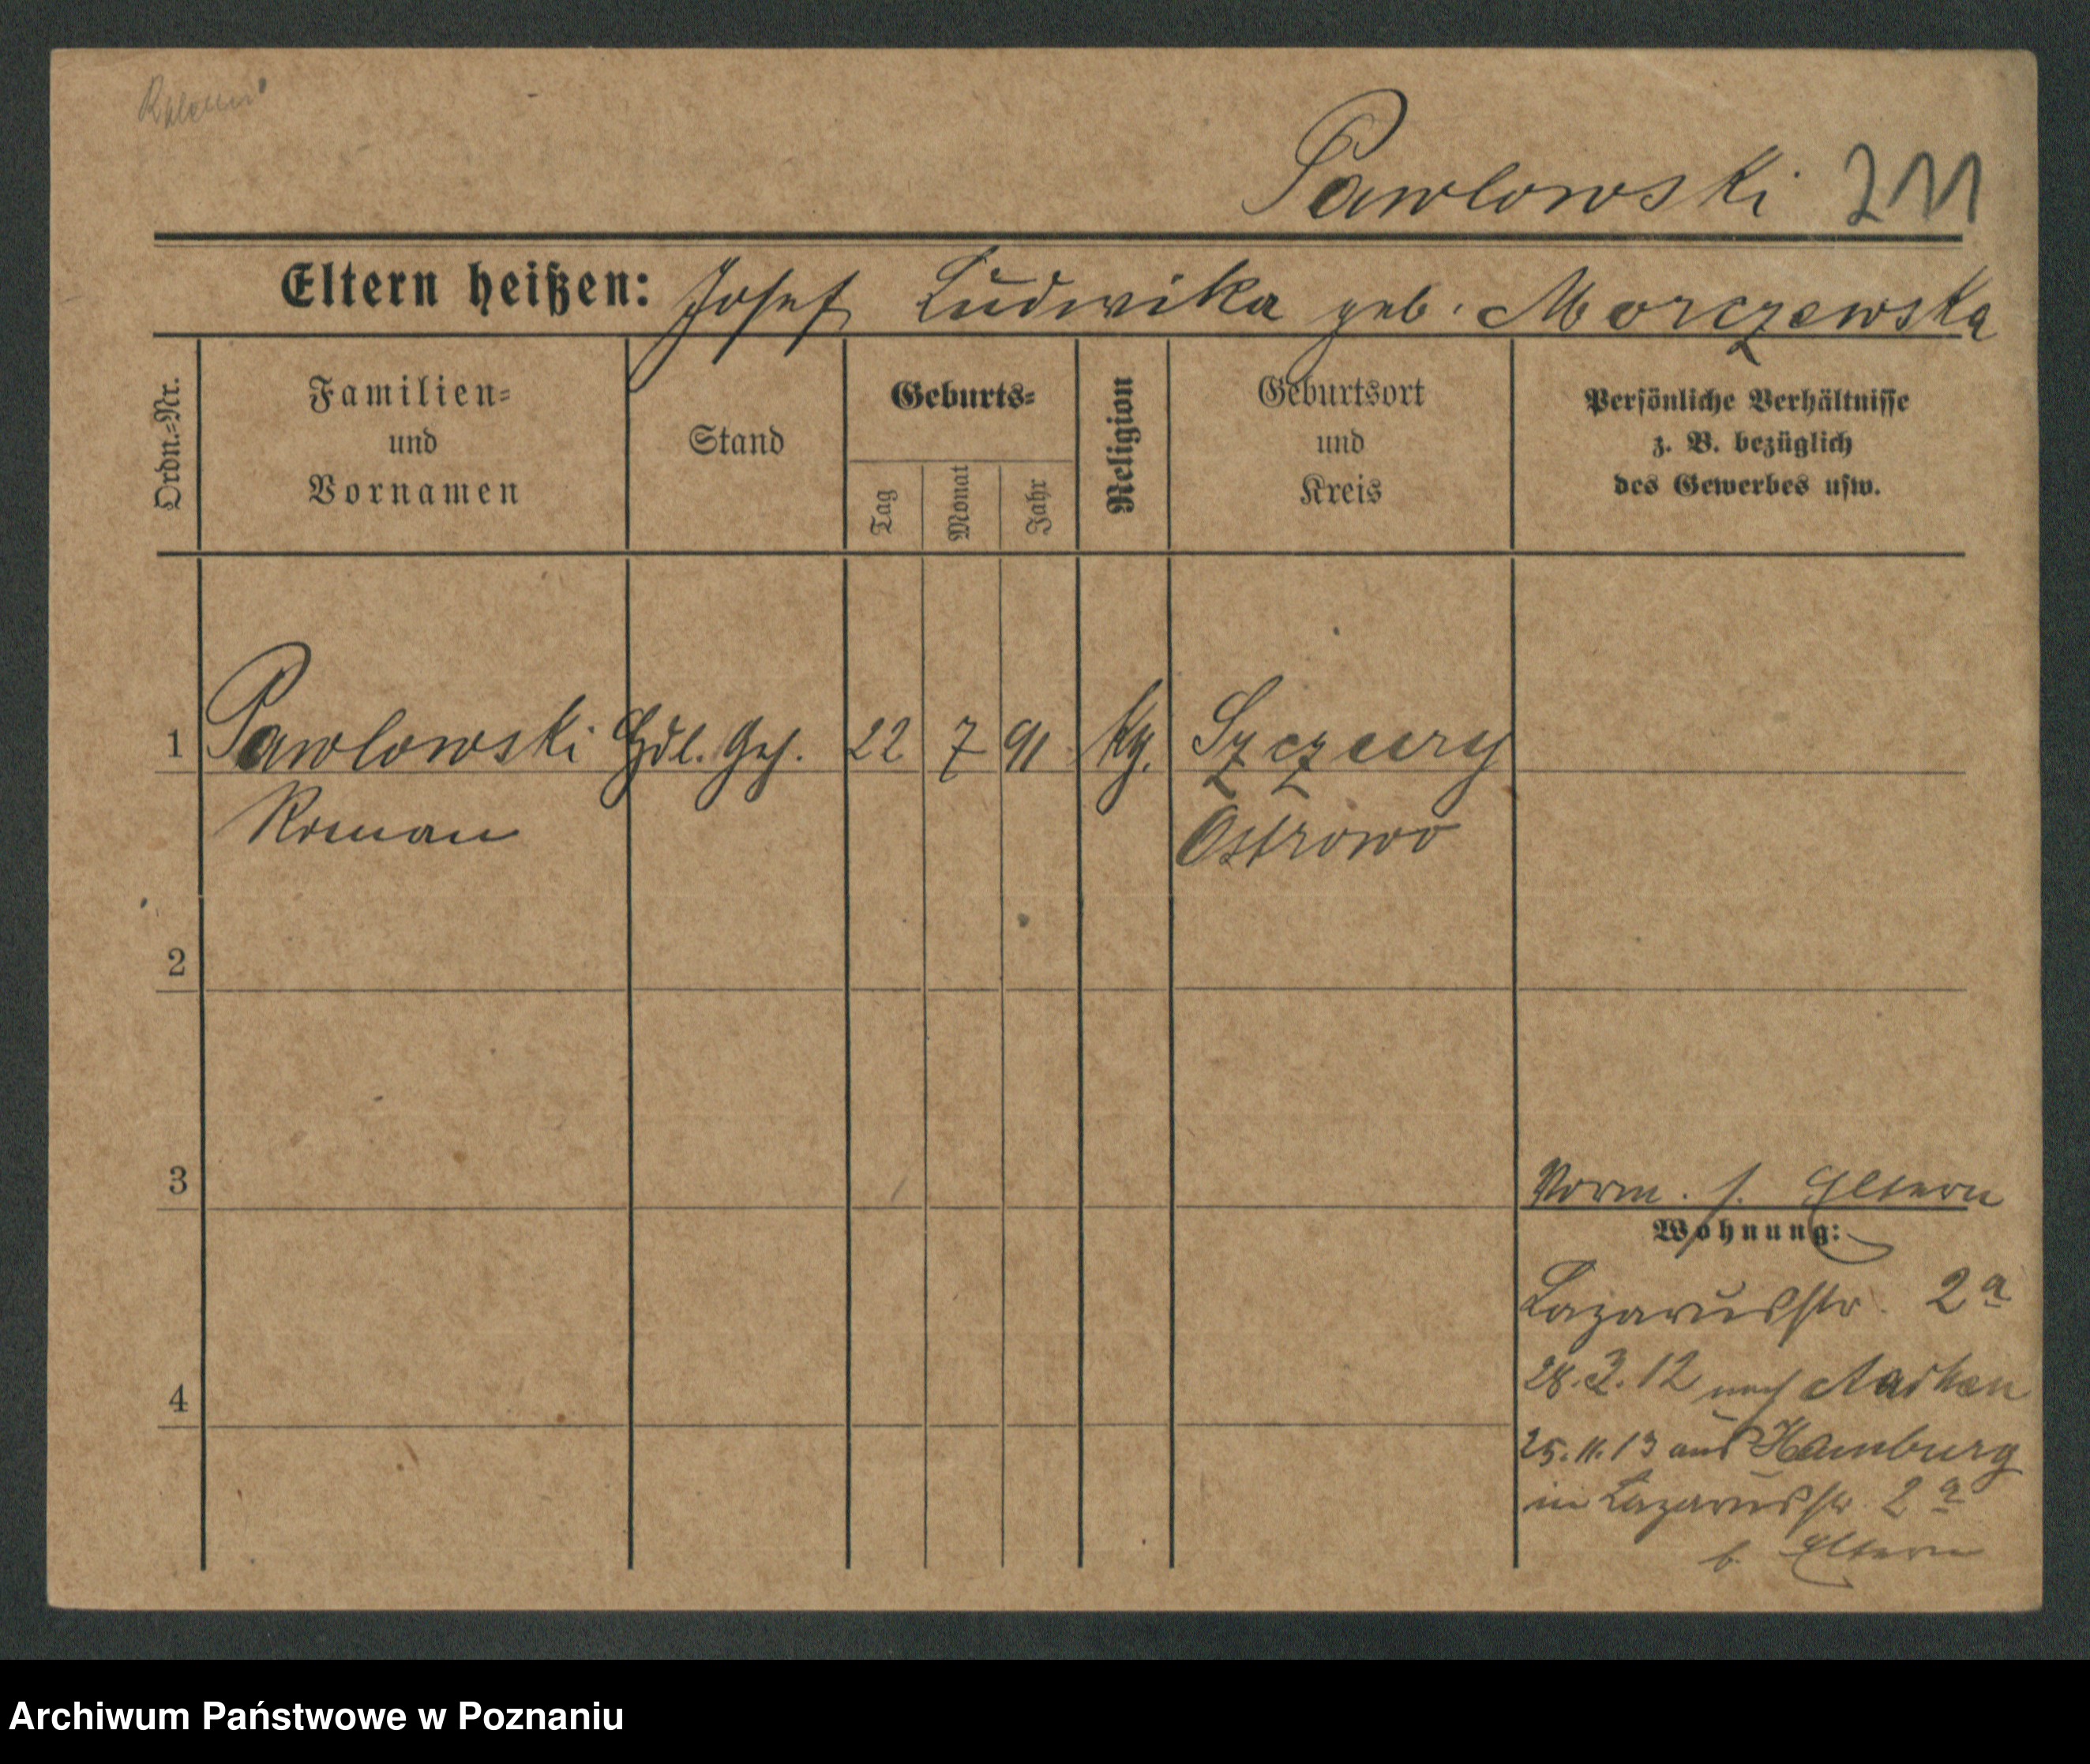 Pawlowski 211
Eltern heißen: Josef Ludwika geb. Morczewska
Ordn.-Nr.
Familien-
und
Vornamen
Stand
Geburts-
Tag
Monat
Jahr
Religion
Geburtsort
und
Kreis
Persönliche Verhältnisse
z. B. bezüglich
des Gewerbes usw.
1 Pawlowski Hdl. Geh. 22 7 91 Kg. Szczury
Roman Ostrowo
2
3
Vorm. s. Eltern
Wohnung:
Lazarusstr. 2a
4
28.3.12 nach Aachen
25.11.13 aus Hamburg
in Lazarusstr. 2a
b. Eltern
Archiwum Państwowe w Poznaniu